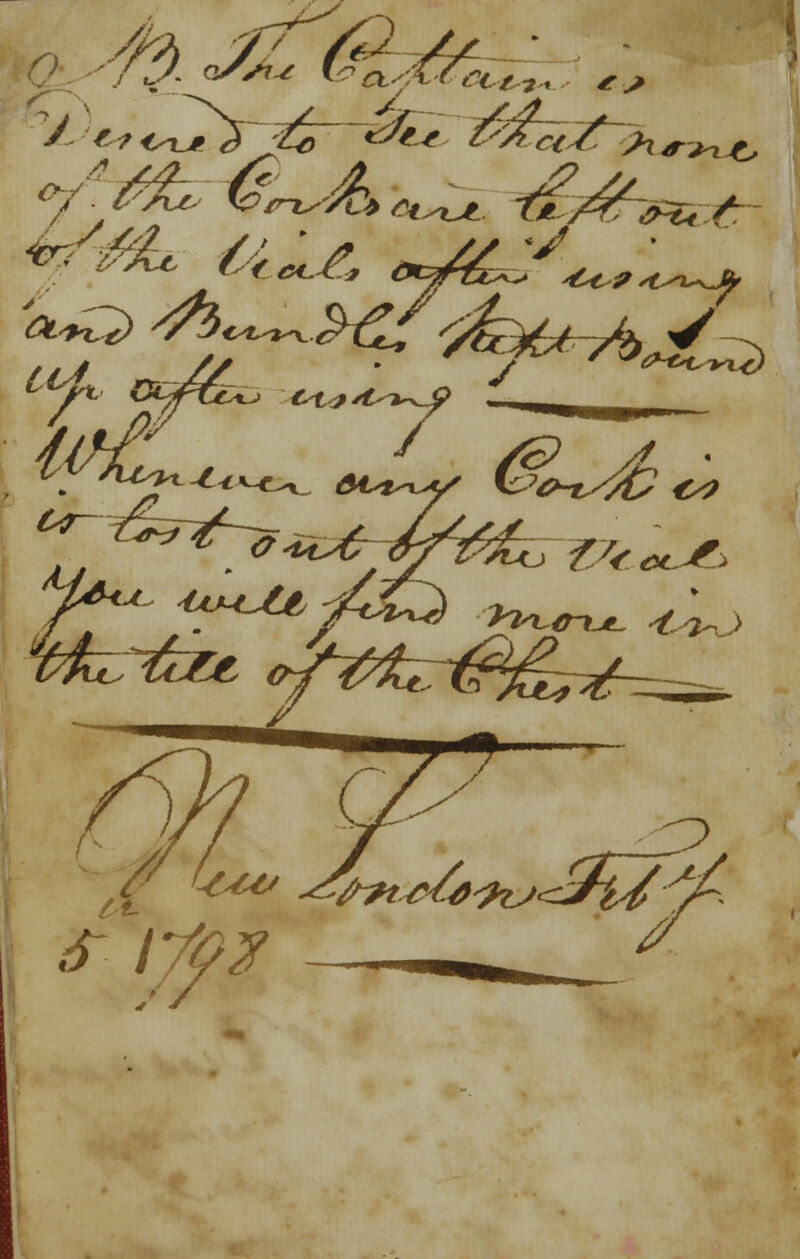 NB. The Captain is
Desired to See that none
of the Corks are left out
of the Vials after using
and Bundles kept Bound
up after using
Whenever any Cork is
is lost out of the Vial
you will find more in
the till of the Chest
New London Feby
5 1798